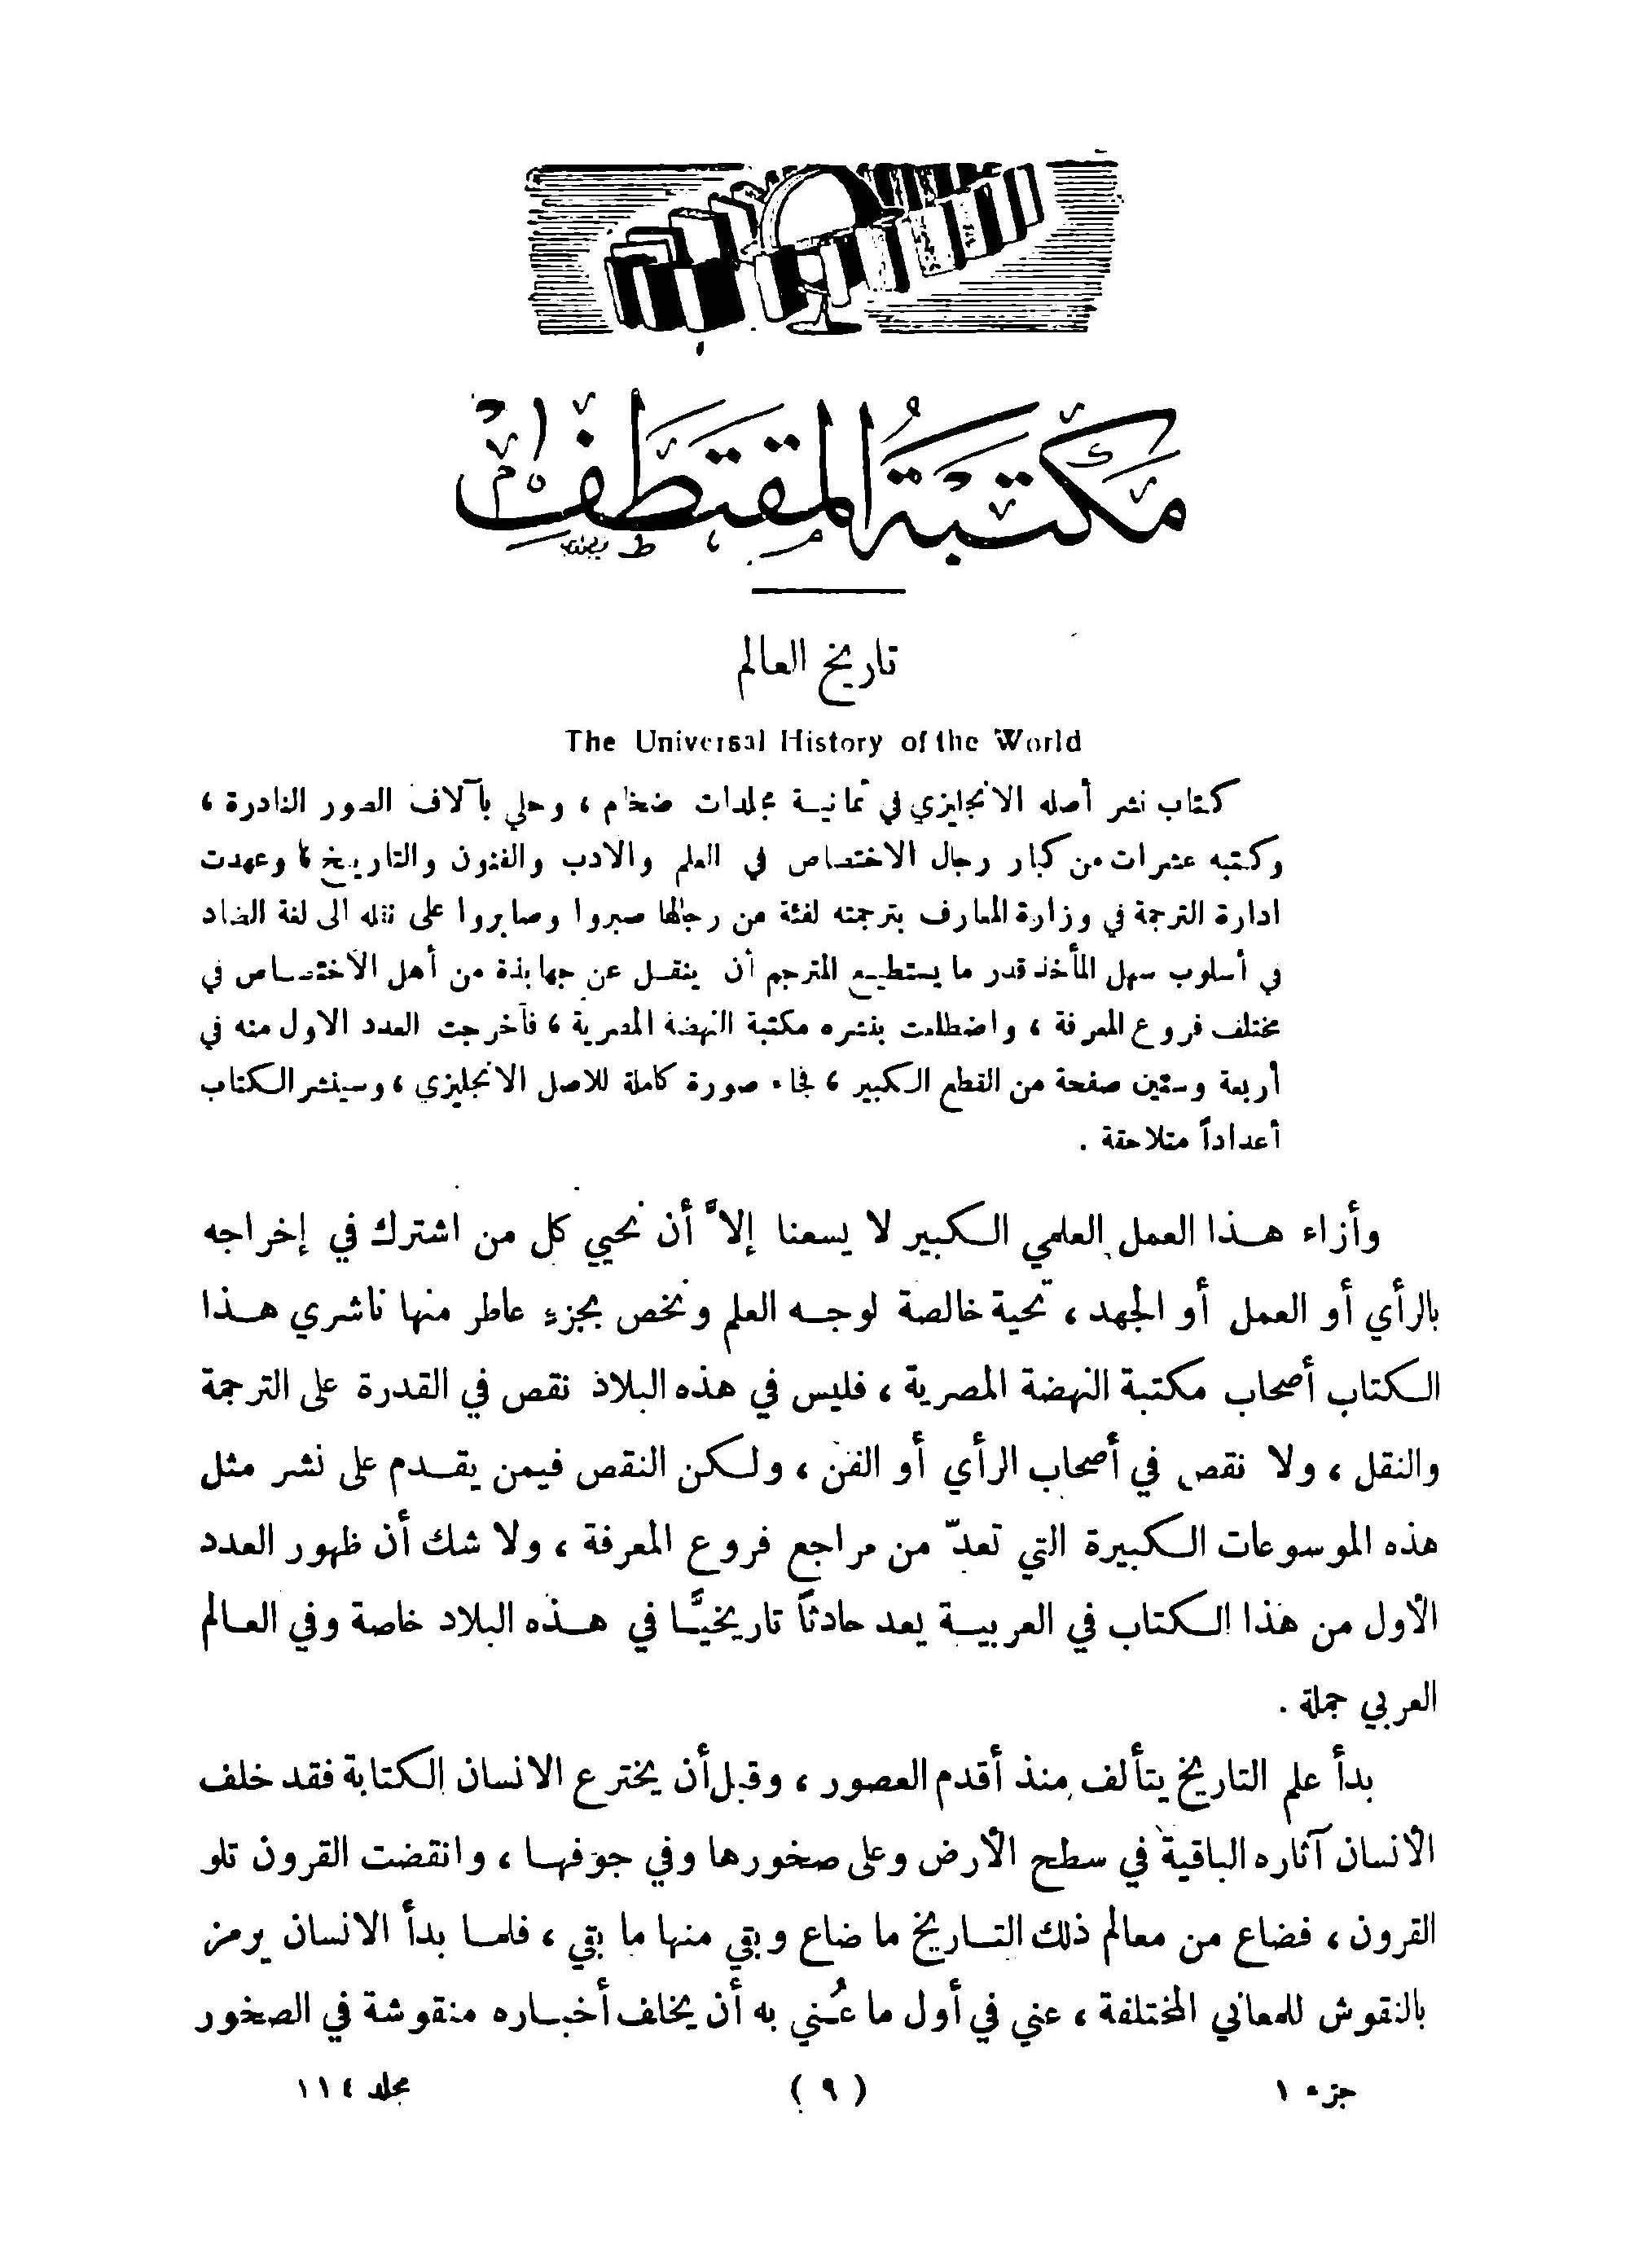 مَكتبَةُ المقتَطَفِ
تاريخ العالم
The Universal History of the World
كتاب نشر أصله الانجليزي في ثمانية مجلدات ضخام ، وحلي بآلاف الصور النادرة ،
وكتبه عشرات من كبار رجال الاختصاص في العلم والادب والفنون والتاريخ ، وعهدت
ادارة الترجمة في وزارة المعارف بترجمته لفئة من رجالها صبروا وصابروا على نقله الى لغة الضاد
في أسلوب سهل المأخذ قدر ما يستطيع المترجم أن ينقل عن جهابذة من أهل الاختصاص في
مختلف فروع المعرفة ، واضطلعت بنشره مكتبة النهضة المصرية ، فأخرجت العدد الاول منه في
أربعة وستين صفحة من القطع الكبير ، فجاء صورة كاملة للاصل الانجليزي ، وسينشر الكتاب
أعداداً متلاحقة .
وأزاء هذا العمل العلمي الكبير لا يسعنا إلاَّ أن نحيي كل من اشترك في إخراجه
بالرأي أو العمل أو الجهد ، تحية خالصة لوجه العلم ونخص بجزءٍ عاطر منها ناشري هذا
الكتاب أصحاب مكتبة النهضة المصرية ، فليس في هذه البلاد نقص في القدرة على الترجمة
والنقل ، ولا نقص في أصحاب الرأي أو الفن ، ولكن النقص فيمن يقدم على نشر مثل
هذه الموسوعات الكبيرة التي تعدّ من مراجع فروع المعرفة ، ولا شك أن ظهور العدد
الأول من هذا الكتاب في العربية يعد حادثاً تاريخيًّا في هذه البلاد خاصة وفي العالم
العربي جملة .
بدأ علم التاريخ يتألف منذ أقدم العصور ، وقبل أن يخترع الانسان الكتابة فقد خلف
الأنسان آثاره الباقية في سطح الأرض وعلى صخورها وفي جوفها ، وانقضت القرون تلو
القرون ، فضاع من معالم ذلك التاريخ ما ضاع وبقي منها ما بقي ، فلما بدأ الانسان يرمز
بالنقوش للمعاني المختلفة ، عني في أول ما عُني به أن يخلف أخباره منقوشة في الصخور
جزء ١ (٩) مجلد ١١٤